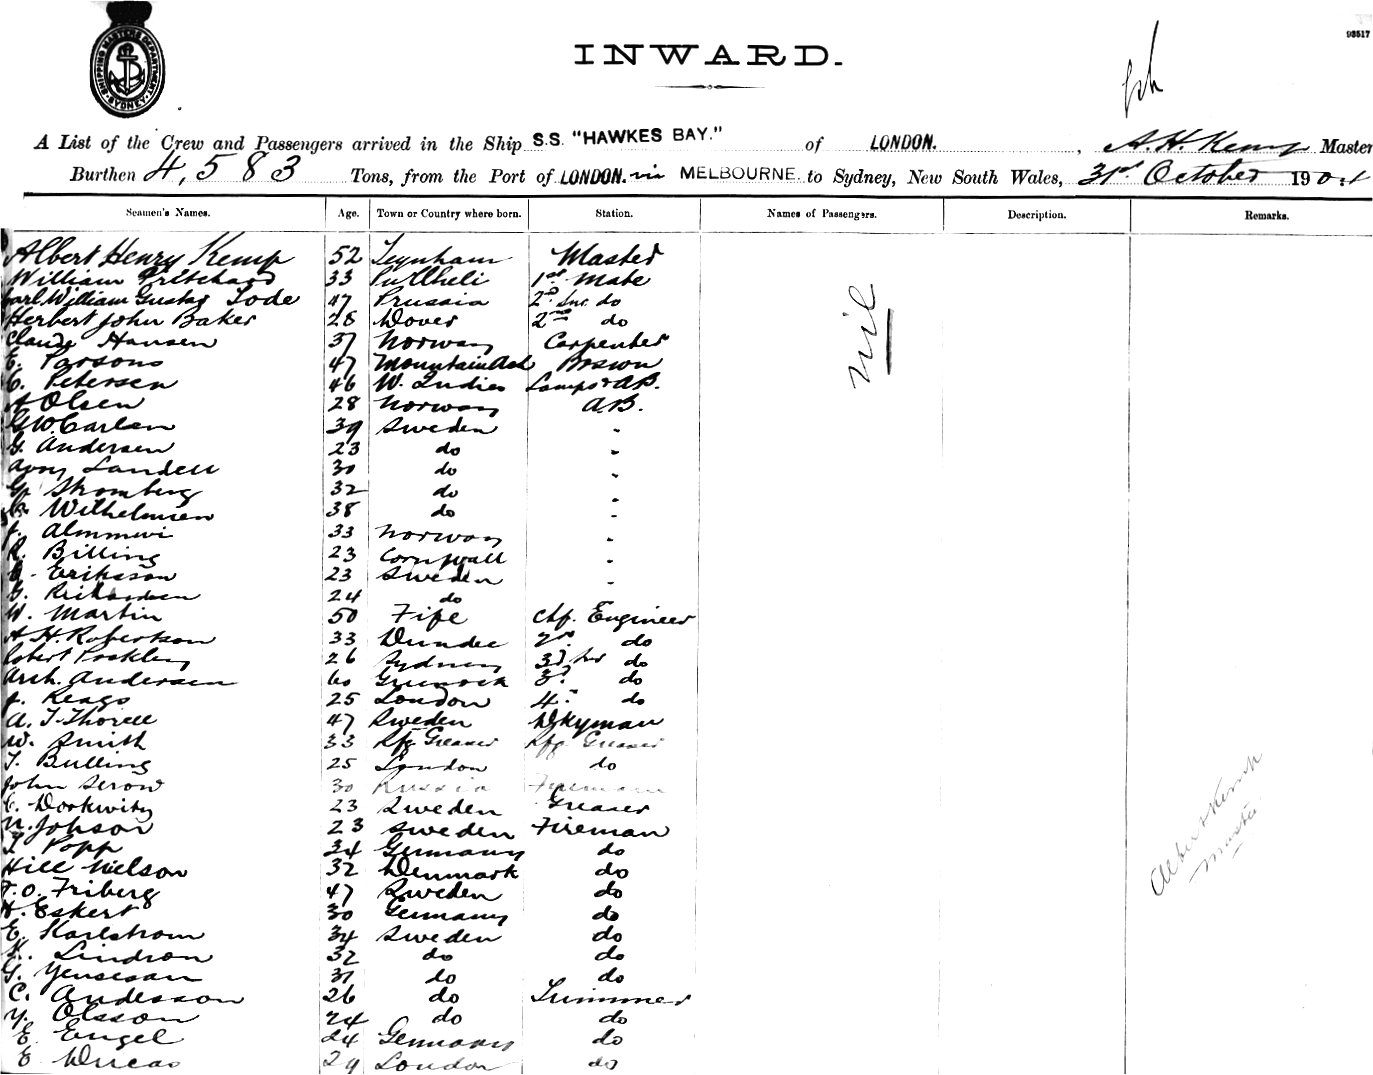 SHIPPING MASTER'S DEPARTMENT. SYDNEY.
93517
INWARD.
A List of the Crew and Passengers arrived in the Ship S.S. "HAWKES BAY." of LONDON. , A. H. Kemp Master
Burthen 4,583 Tons, from the Port of LONDON. via MELBOURNE. to Sydney, New South Wales, 31st October 1901
Seamen's Names. Age. Town or Country where born. Station. Names of Passengers. Description. Remarks.
Albert Henry Kemp 52 Teynham Master
William Pritchard 33 Pwllheli 1st Mate
Carl William Gustav Tode 47 Prussia 2nd Snr. do
Herbert John Baker 28 Dover 2nd do
nil
Claude Hansen 37 Norway Carpenter
E. Parsons 47 Mountain Ash Boswn
C. Petersen 46 W. Indies Lamps & A.B.
A Olsen 28 Norway A.B.
G. W. Carlsen 39 Sweden "
G. Andersen 23 do "
Landell 30 do "
G. Stromberg 32 do "
Wilhelmsen 38 do "
J. 33 Norway "
R. Billing 23 Cornwall "
E. Eriksson 23 Sweden "
G. 24 do
W. Martin 50 Fife Chf. Engineer
A. H. Robertson 33 Dundee 2nd. do
Robert 26 Sydney 3rd Snr do
Arch. Andersen 60 Greenock 3rd. do
J. 25 London 4th do
A. T. Thorell 47 Sweden Dkyman
W. Smith 33 Rfg Greaser Rfg Greaser
T. Bulling 25 London do
John Serow 30 Russia Fireman
C. 23 Sweden Greaser
N. Johson 23 Sweden Fireman
T. Popp 34 Germany do
Hill Nielson 32 Denmark do
F. O. Friberg 47 Sweden do
H. Eskert 30 Germany do
E. Karlstrom 34 Sweden do
K. Lindron 32 do do
G. 31 do do
C. Andesson 26 do Trimmer
Y. Olsson 24 do do
E. Engel 24 Germany do
E 29 London do
Albert H Kemp
Master